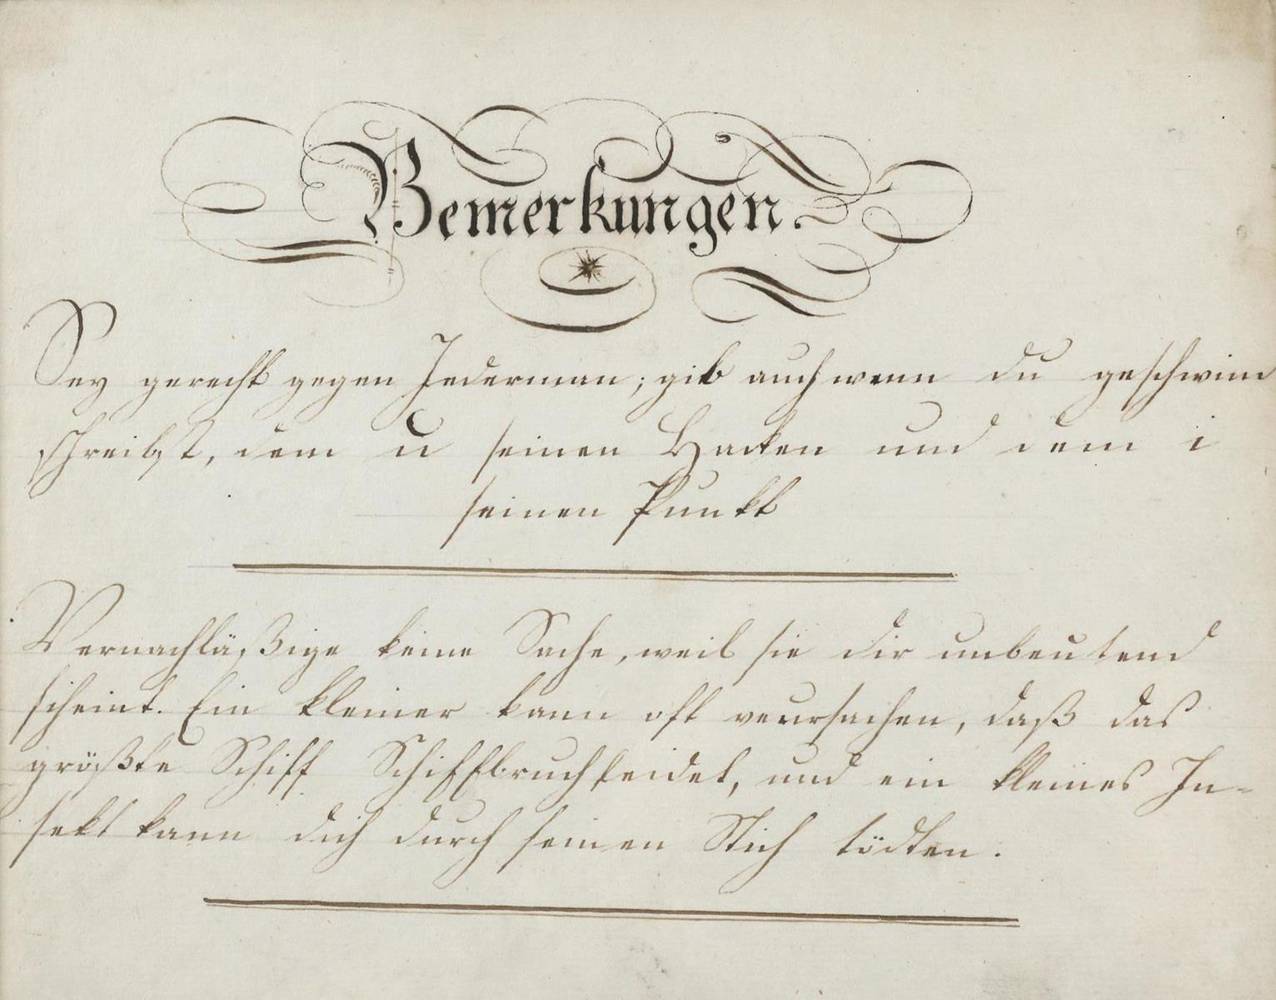 Bemerkungen.
Sey gerecht gegen Jederman; gib auch wenn du geschwind
schreibst, dem u seinen Hacken und dem i
seinen Punkt
Vernachläßige keine Sache, weil sie dir unbeutend
scheint. Ein kleiner kann oft verursachen, daß das
größte Schiff Schiffbruch leidet, und ein kleines In-
sekt kann dich durch seinen Stich tödten.